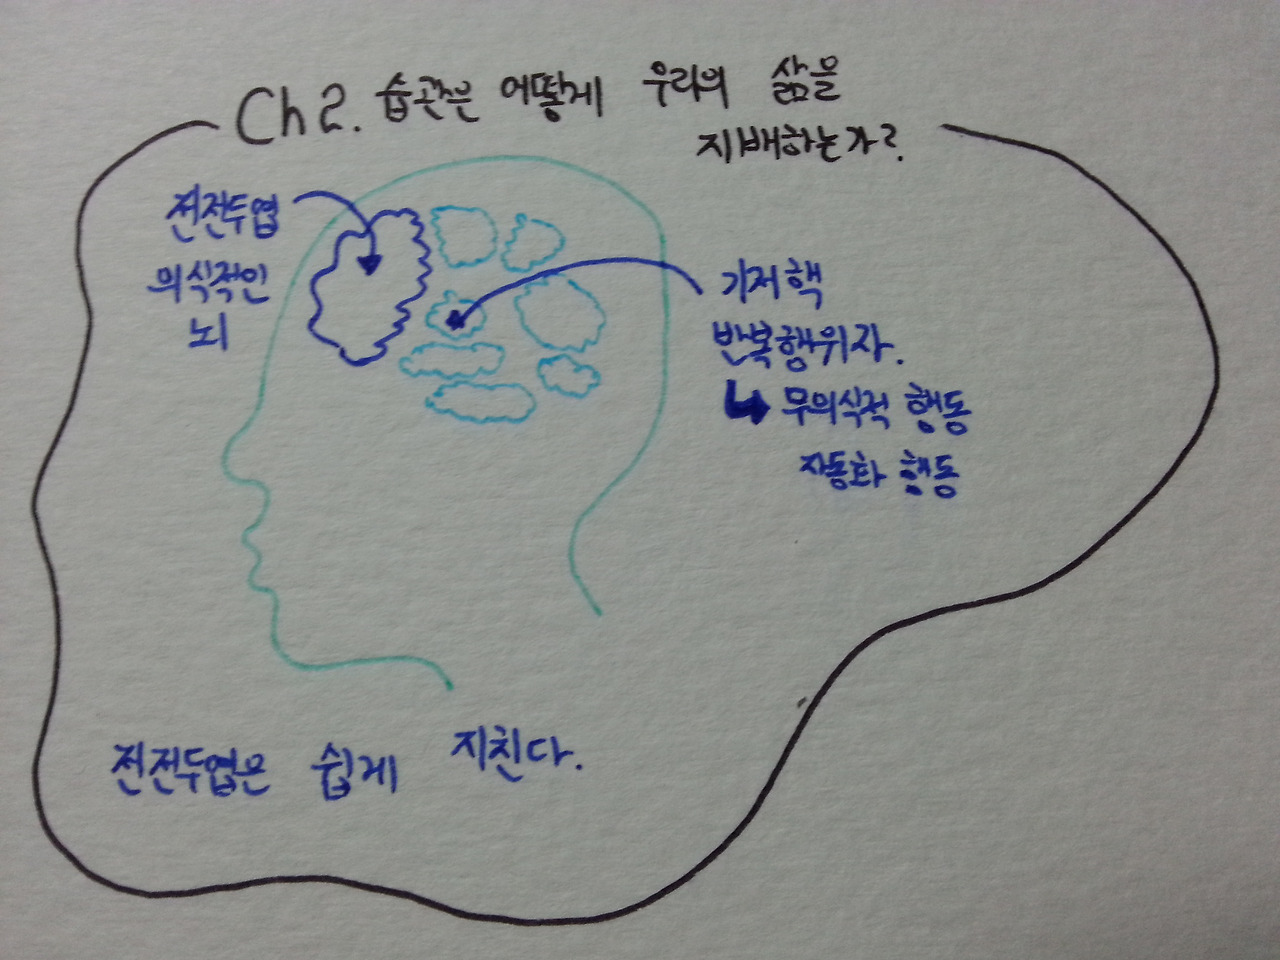 Ch 2. 습관은 어떻게 우리의 삶을
지배하는가?
전전두엽
의식적인
뇌
기저핵
반복행위자.
↳ 무의식적 행동
자동화 행동
전전두엽은 쉽게 지친다.